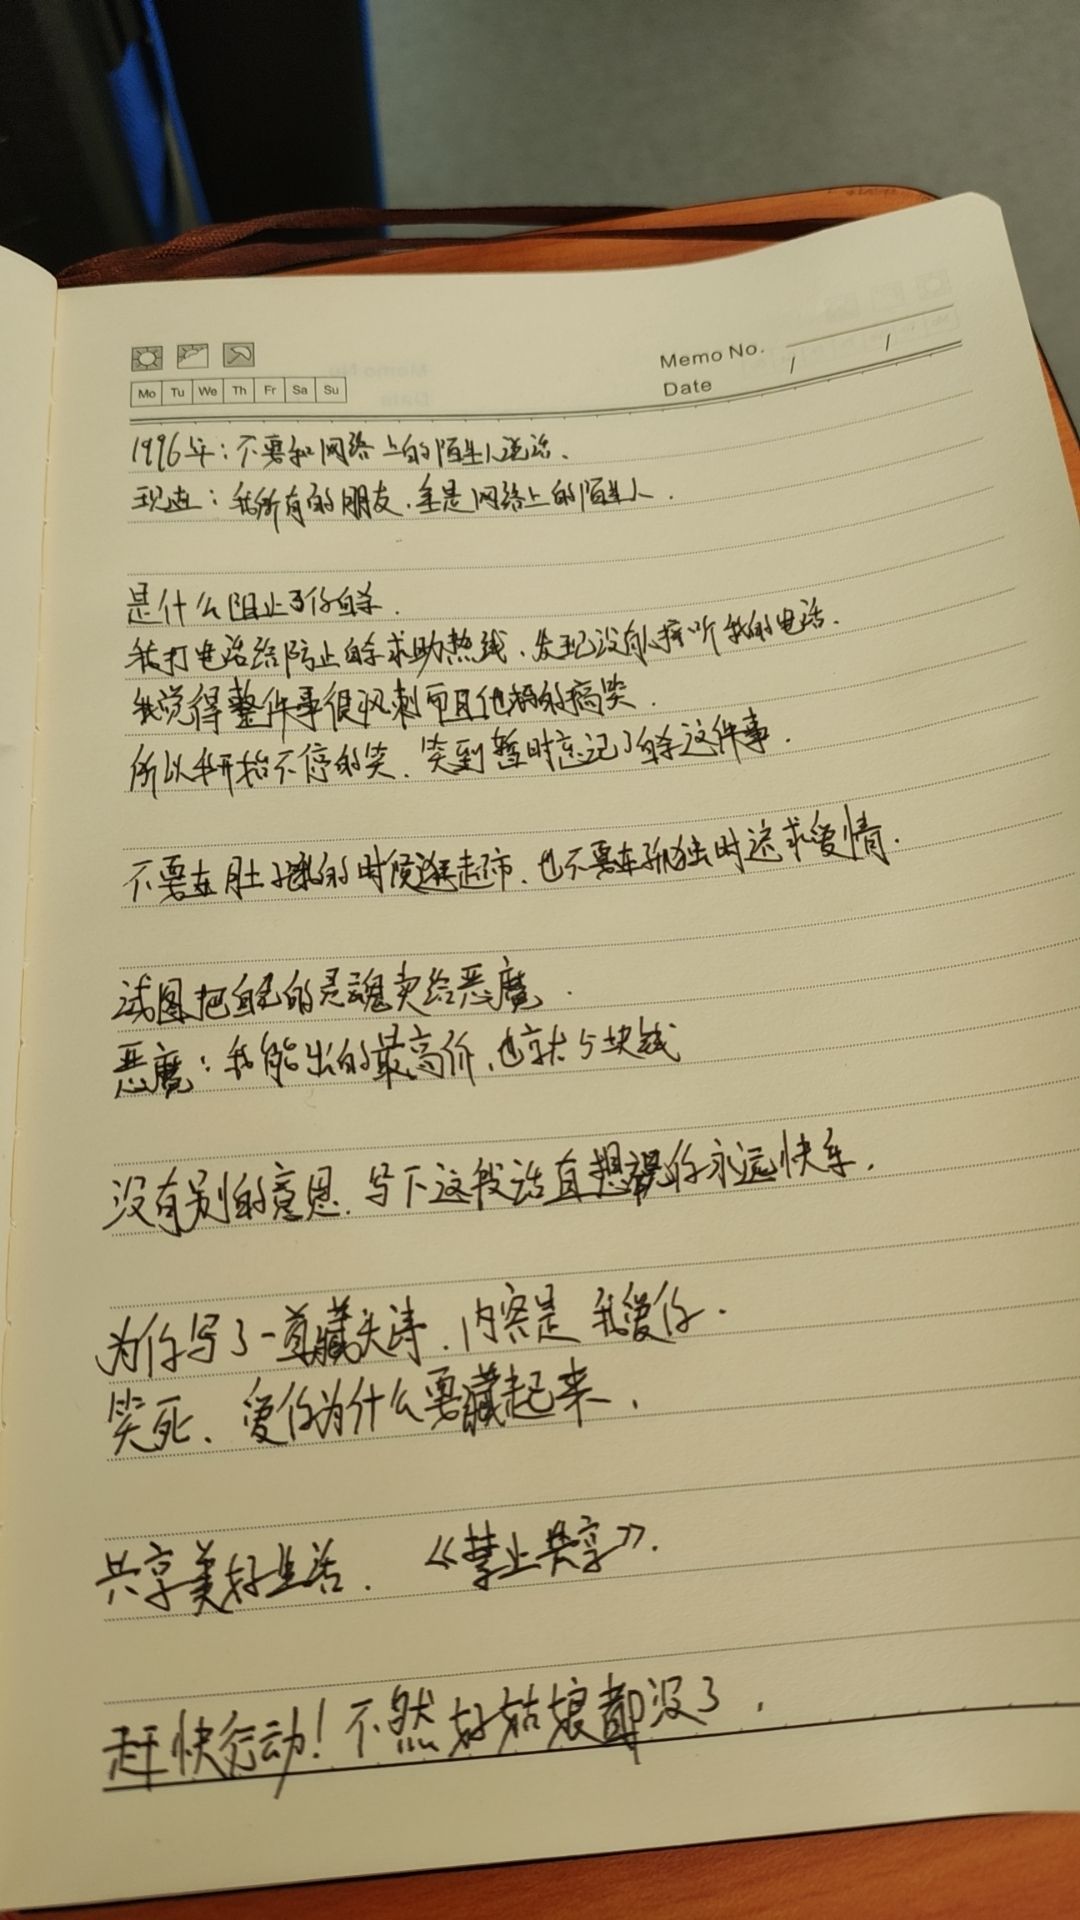 Memo No.
Date / /
Mo Tu We Th Fr Sa Su
1996年：不要和网络上的陌生人说话.
现在：我所有的朋友.全是网络上的陌生人.
是什么阻止了你自杀.
我打电话给防止自杀求助热线、发现没有人接听我的电话.
我觉得整件事很讽刺而且他妈的搞笑.
所以我开始不停的笑、笑到暂时忘记了自杀这件事.
不要在肚子饿的时候逛超市、也不要在孤独时追求爱情.
试图把自己的灵魂卖给恶魔.
恶魔：我能出的最高价、也就5块钱
没有别的意思、写下这段话且想祝你永远快乐.
为你写了一首藏头诗、内容是 我爱你.
笑死、爱你为什么要藏起来、
共享美好生活、《禁止共享》.
赶快行动！不然好姑娘都没了.